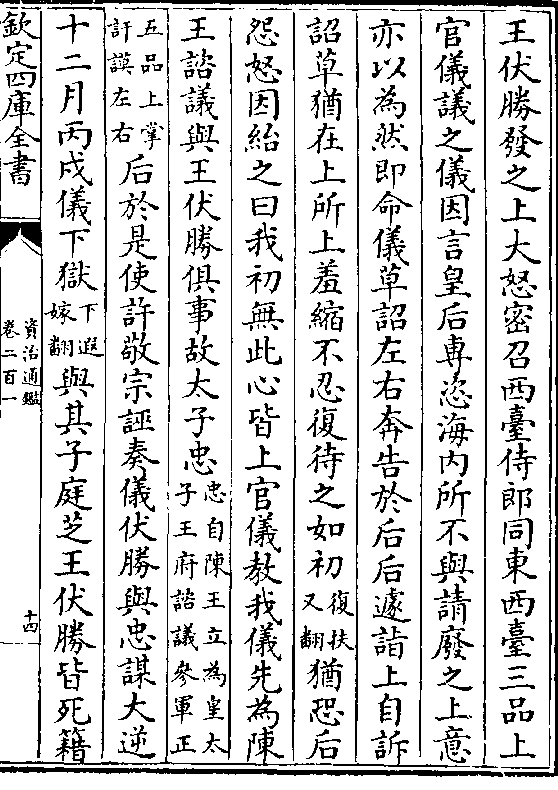 王伏勝發之上大怒密召西臺侍郎同東西臺三品上
官儀議之儀因言皇后專恣海內所不與請廢之上意
亦以為然即命儀草詔左右奔告於后后遽詣上自訴
詔草猶在上所上羞縮不忍復待之如初復扶又翻猶恐后
怨怒因紿之曰我初無此心皆上官儀教我儀先為陳
王諮議與王伏勝俱事故太子忠忠自陳王立為皇太子王府諮議參軍正
五品上掌訐謨左右后於是使許敬宗誣奏儀伏勝與忠謀大逆
十二月丙戌儀下獄下遐嫁翻與其子庭芝王伏勝皆死籍
欽定四庫全書
資治通鑑
卷二百一
十四